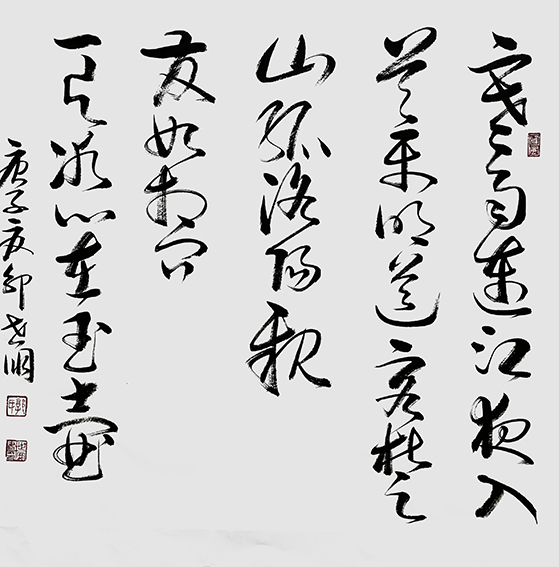 寒雨連江夜入
吴平明送客楚
山孤洛陽親
友如相問
一片冰心在玉壺
庚子夏